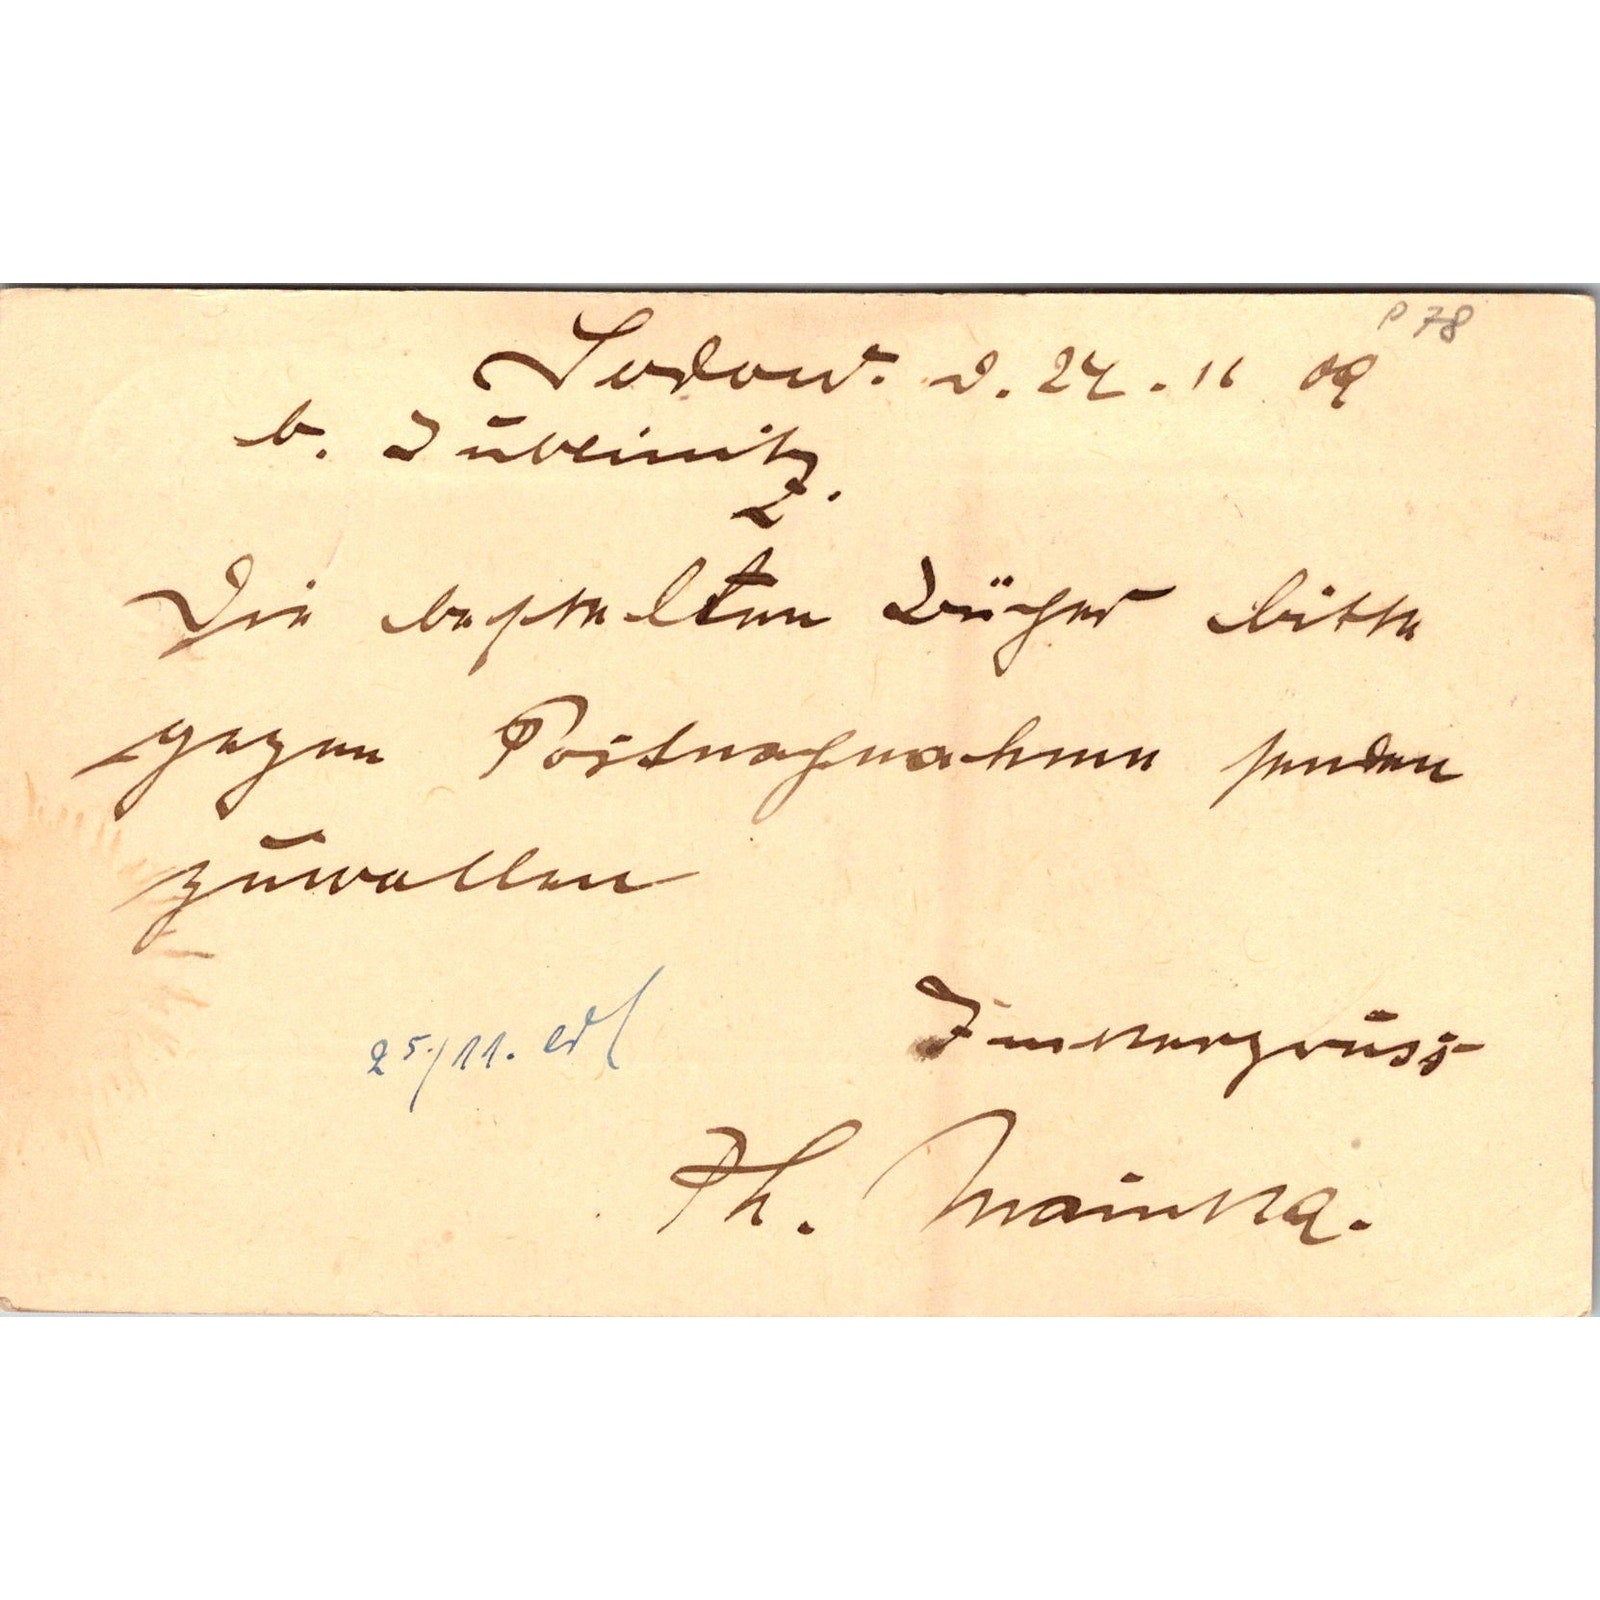 P 78
Sodow. d. 24. 11 09
b. Lublinitz
Die bestellten Bücher bitte
gegen Postnachnahme senden
zuwollen
25/11. erl
Imkergruss
Ph. Mainka.